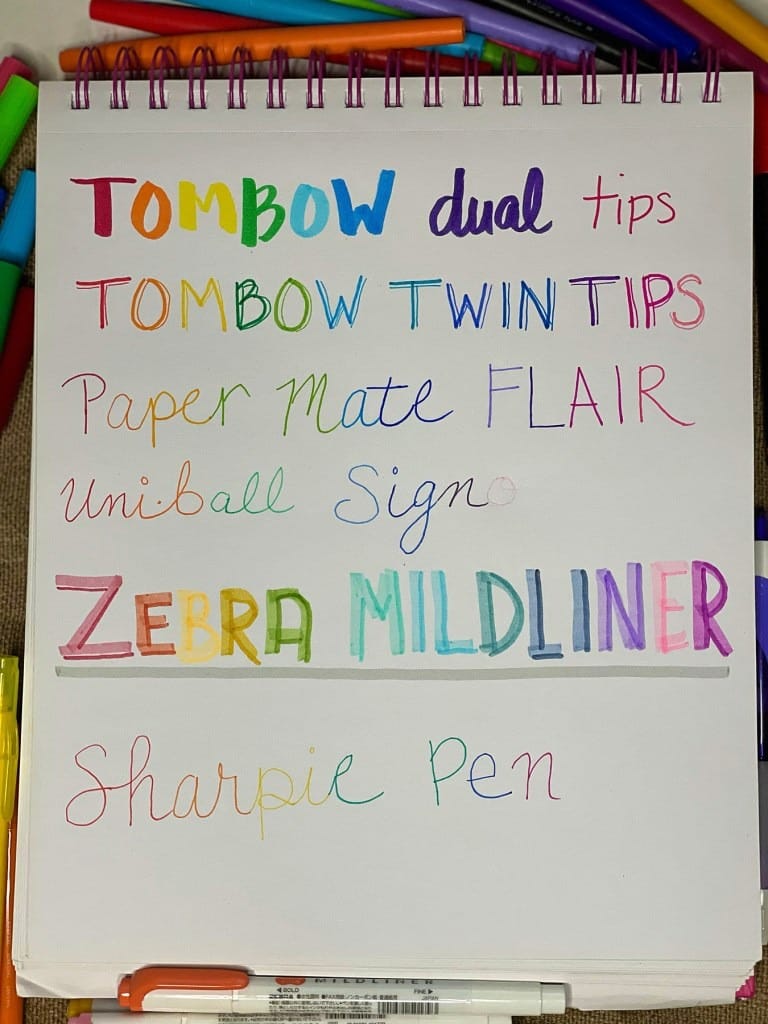 TOMBOW dual tips
TOMBOW TWIN TIPS
Paper Mate FLAIR
Uni·ball Signo
ZEBRA MILDLINER
Sharpie Pen
MILDLINER
◀BOLD FINE▶
ZEBRA
JAPAN